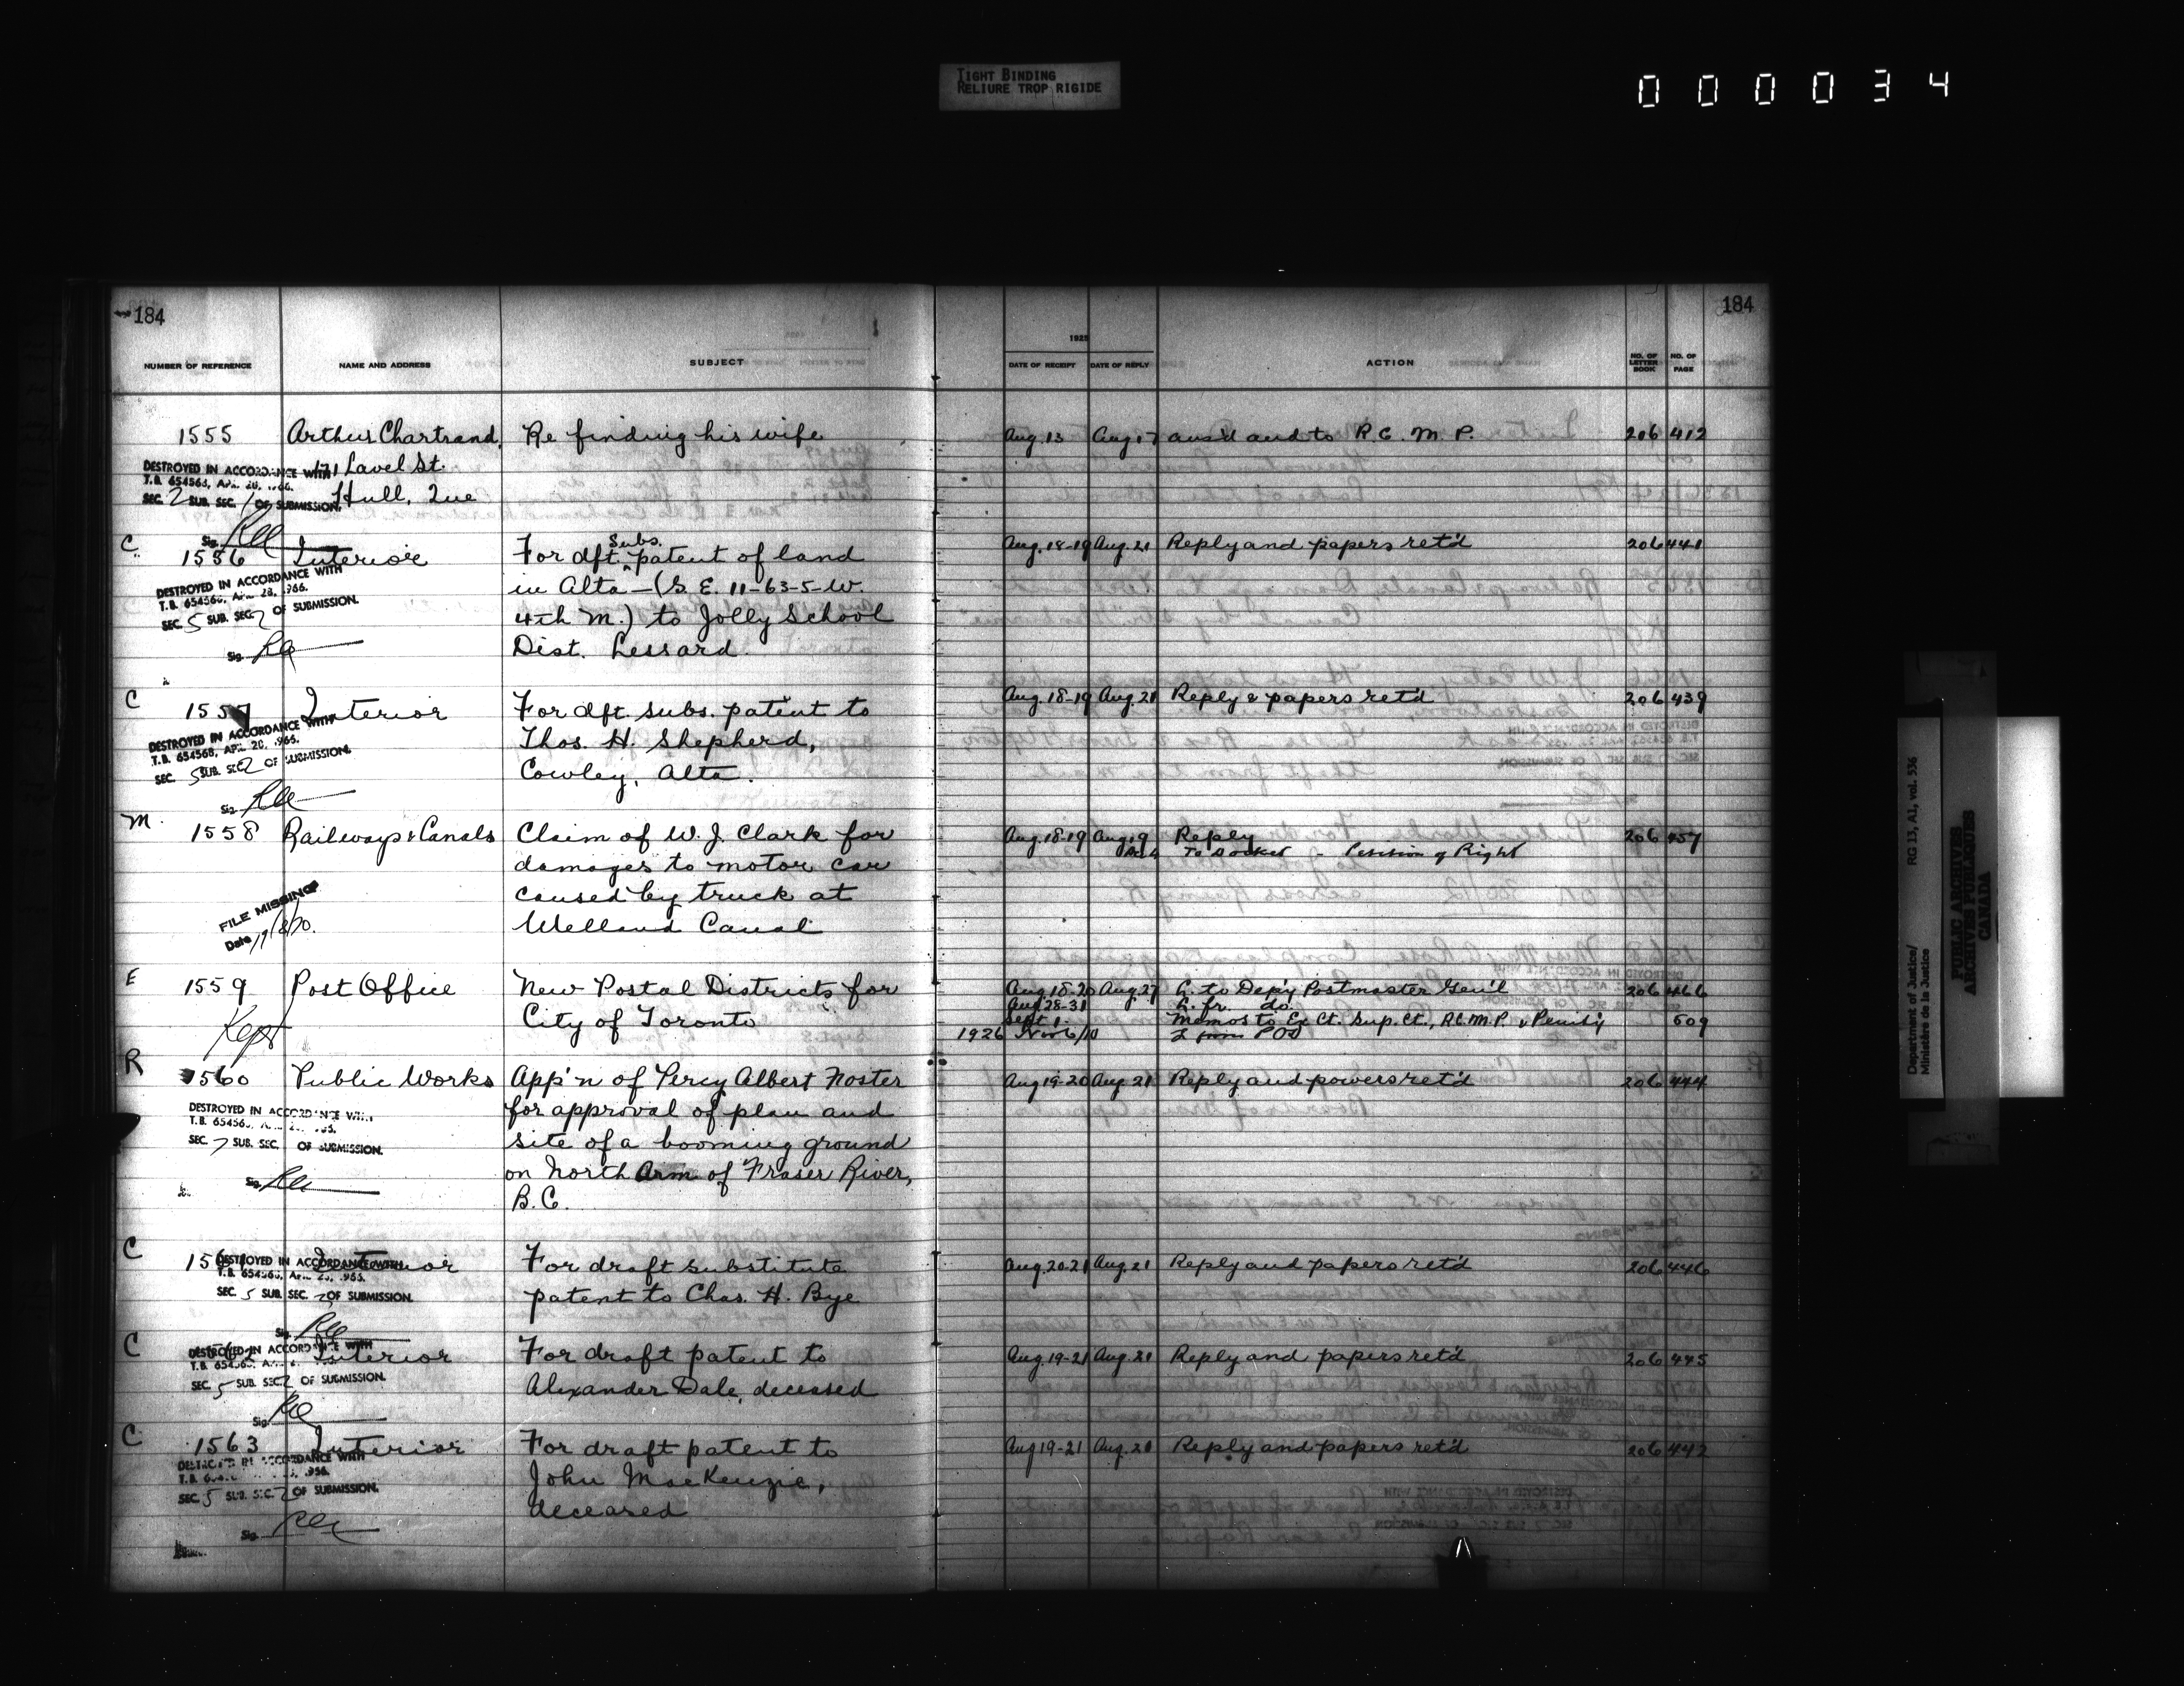 TIGHT BINDING
RELIURE TROP RIGIDE
0 0 0 0 0 3 4
184
184
1925
NUMBER OF REFERENCE NAME AND ADDRESS SUBJECT DATE OF RECEIPT DATE OF REPLY ACTION NO. OF LETTER BOOK NO. OF PAGE
1555 Arthur Chartrand, Re finding his wife Aug. 13 Aug 17 ans'd and to R.C.M.P. 206 412
171 Laval St.
Hull, Que
DESTROYED IN ACCORDANCE WITH
T.B. 654568, APR. 28, 1966.
SEC. 2 SUB. SEC. 1 OF SUBMISSION.
Sig.
C 1556 Interior For dft. Subs. patent of land Aug. 18-19 Aug. 21 Reply and papers ret'd 206 441
in Alta - (S.E. 11-63-5-W.
4th M.) to Jolly School
Dist. Lessard.
DESTROYED IN ACCORDANCE WITH
T.B. 654568, APR. 28, 1966.
SEC. 5 SUB. SEC. 2 OF SUBMISSION.
Sig.
C 1557 Interior For dft. subs. patent to Aug. 18-19 Aug. 21 Reply & papers ret'd 206 439
Thos. H. Shepherd,
Cowley, Alta.
DESTROYED IN ACCORDANCE WITH
T.B. 654568, APR. 28, 1966.
SEC. 5 SUB. SEC. 2 OF SUBMISSION.
Sig.
M. 1558 Railways & Canals Claim of W. J. Clark for Aug. 18-19 Aug. 19 Reply 206 457
To Docket - Petition of Right
damages to motor car
caused by truck at
Welland Canal
FILE MISSING
Date 17/8/70.
E 1559 Post Office New Postal Districts for Aug 18-20 Aug. 27 L. to Dep'y Postmaster Gen'l 206 466
Aug 28-31 L. fr. do.
City of Toronto Sept 1- Memos to Ex Ct. Sup. Ct., R.C.M.P. & Penit'y 509
Kept 1926 Nov 6/10 L from POD
R 1560 Public Works App'n of Percy Albert Noster Aug 19-20 Aug. 21 Reply and powers ret'd 206 444
for approval of plan and
site of a booming ground
on North Arm of Fraser River,
B.C.
DESTROYED IN ACCORDANCE WITH
SEC. 7 SUB. SEC. OF SUBMISSION.
Sig.
C 1561 Interior For draft substitute Aug. 20-21 Aug. 21 Reply and papers ret'd 206 446
patent to Chas. H. Bye
DESTROYED IN ACCORDANCE WITH
T.B. 654568, APR. 28, 1966.
SEC. 5 SUB. SEC. 2 OF SUBMISSION.
Sig.
C 1562 Interior For draft patent to Aug. 19-21 Aug. 21 Reply and papers ret'd 206 445
Alexander Dale, deceased
DESTROYED IN ACCORDANCE WITH
SEC. 5 SUB. SEC. 2 OF SUBMISSION.
Sig.
C 1563 Interior For draft patent to Aug 19-21 Aug. 20 Reply and papers ret'd 206 442
John MacKenzie,
deceased
DESTROYED IN ACCORDANCE WITH
SEC. 5 SUB. SEC. 2 OF SUBMISSION.
Sig.
Department of Justice/ RG 13, A1, vol. 536
Ministère de la Justice
PUBLIC ARCHIVES
ARCHIVES PUBLIQUES
CANADA